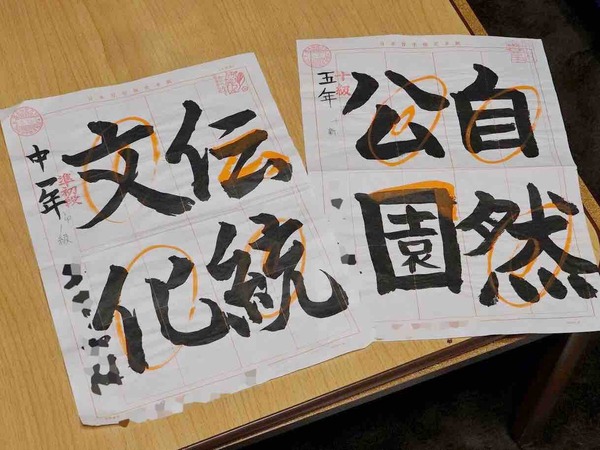 伝統
文化
中一年
準初段
自然
公園
五年
十級